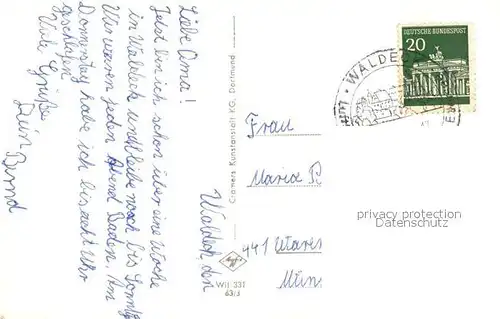 Liebe Oma!
Jetzt bin ich schon über eine Woche
in Waldeck und bleibe noch bis Sonntag
Wir waren jeden Abend Baden. Am
Donnerstag habe ich bis acht Uhr
geschlafen
Viele Grüße
Dein Bernd
Waldeck, den
Cramers Kunstanstalt KG, Dortmund
Agfa
Wil 331
63/3
DEUTSCHE BUNDESPOST
20
WALDECK
Frau
Maria
privacy protection
Datenschutz
441
Mün